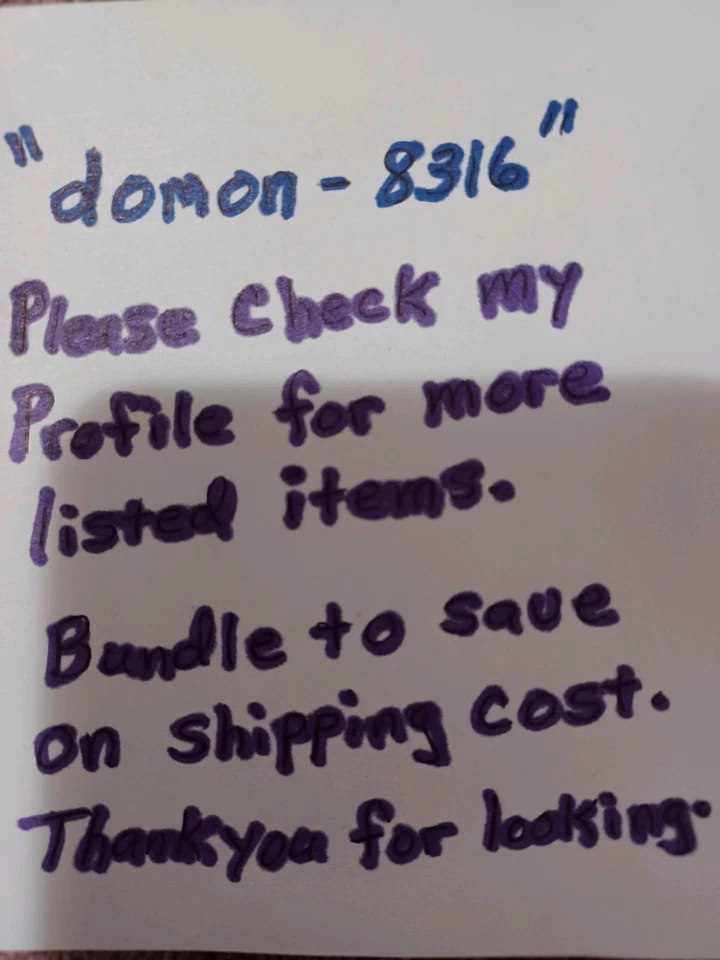 "domon - 8316"
Please Check my
Profile for more
listed items.
Bundle to save
on shipping cost.
Thankyou for looking.